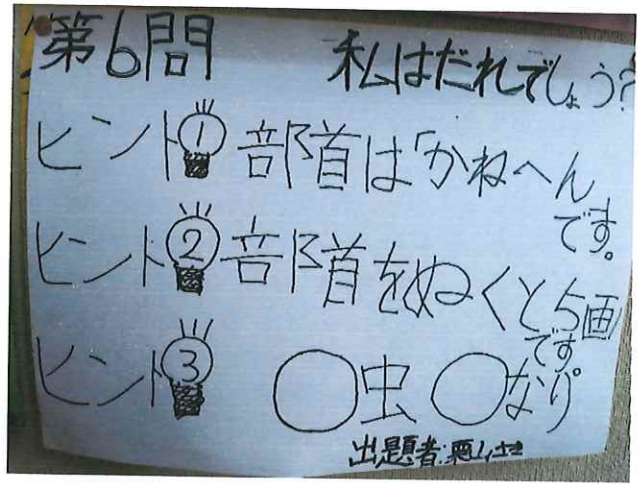 第6問 私はだれでしょう?
ヒント1 部首は「かねへん
です。
ヒント2 部首をぬくと5画
です
ヒント3 ○虫 ○なり。
出題者: